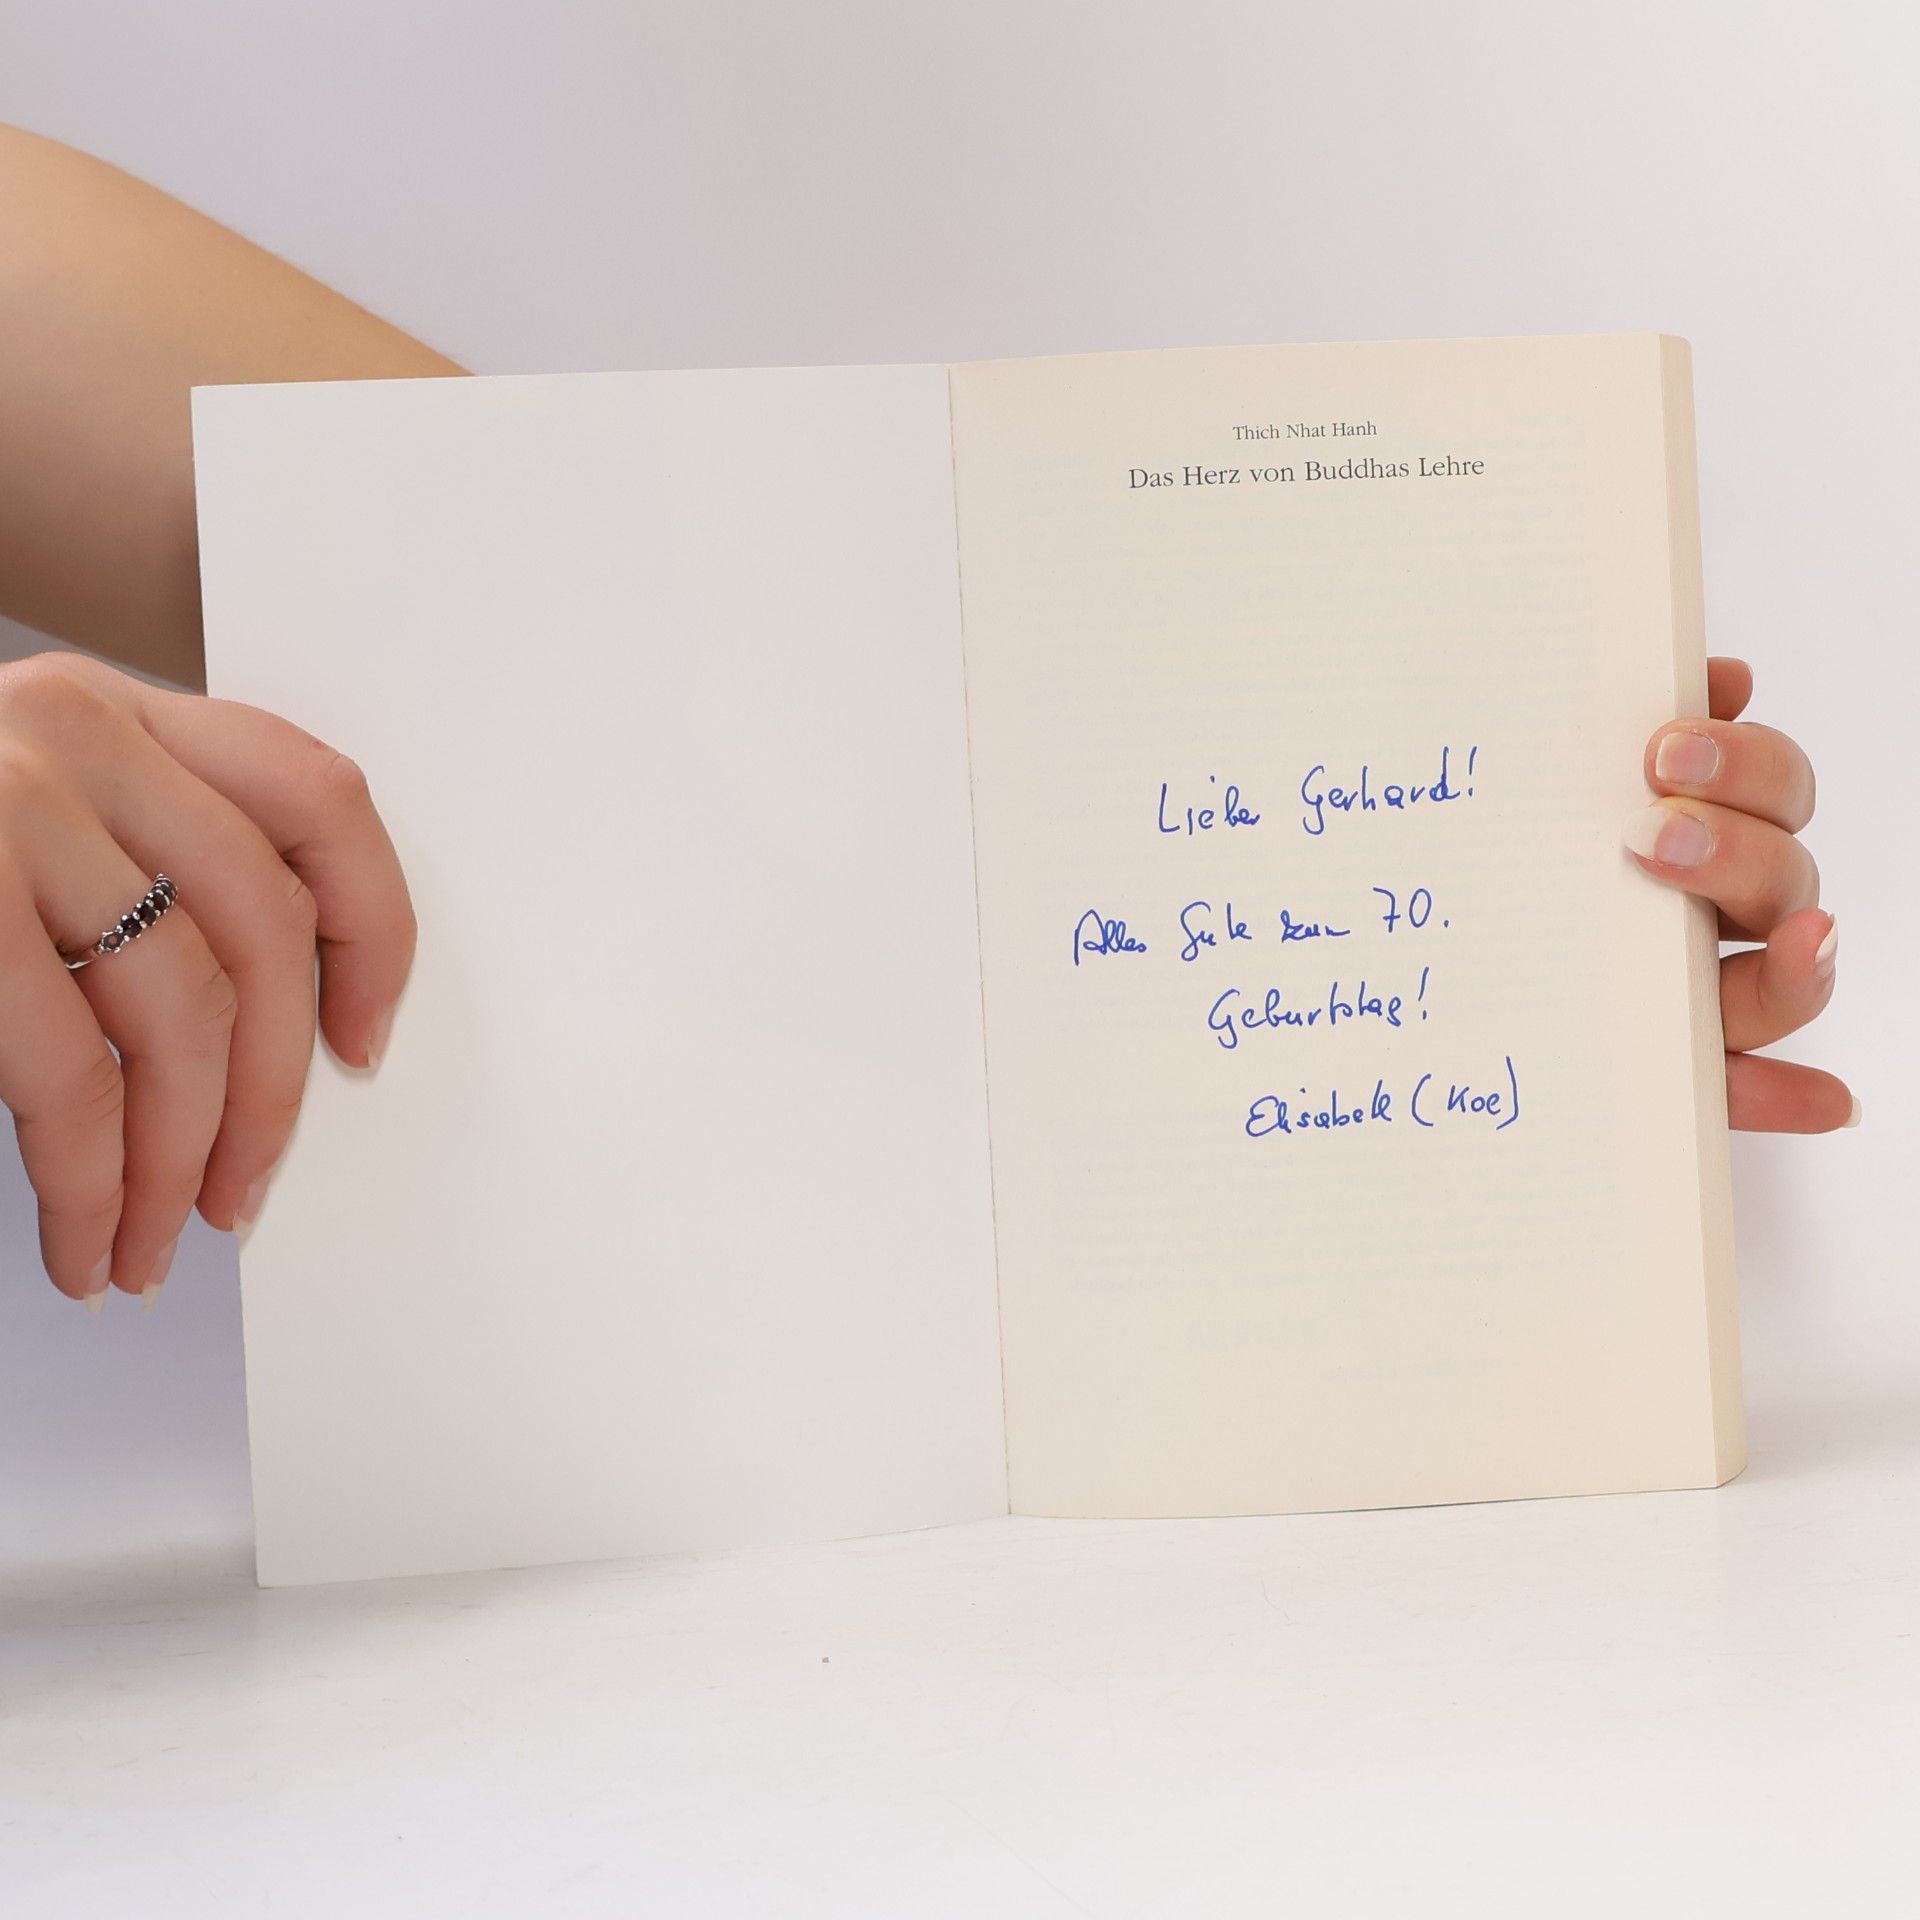 Thich Nhat Hanh
Das Herz von Buddhas Lehre
Lieber Gerhard!
Alles Gute zum 70.
Geburtstag!
Elisabeth (Koe)